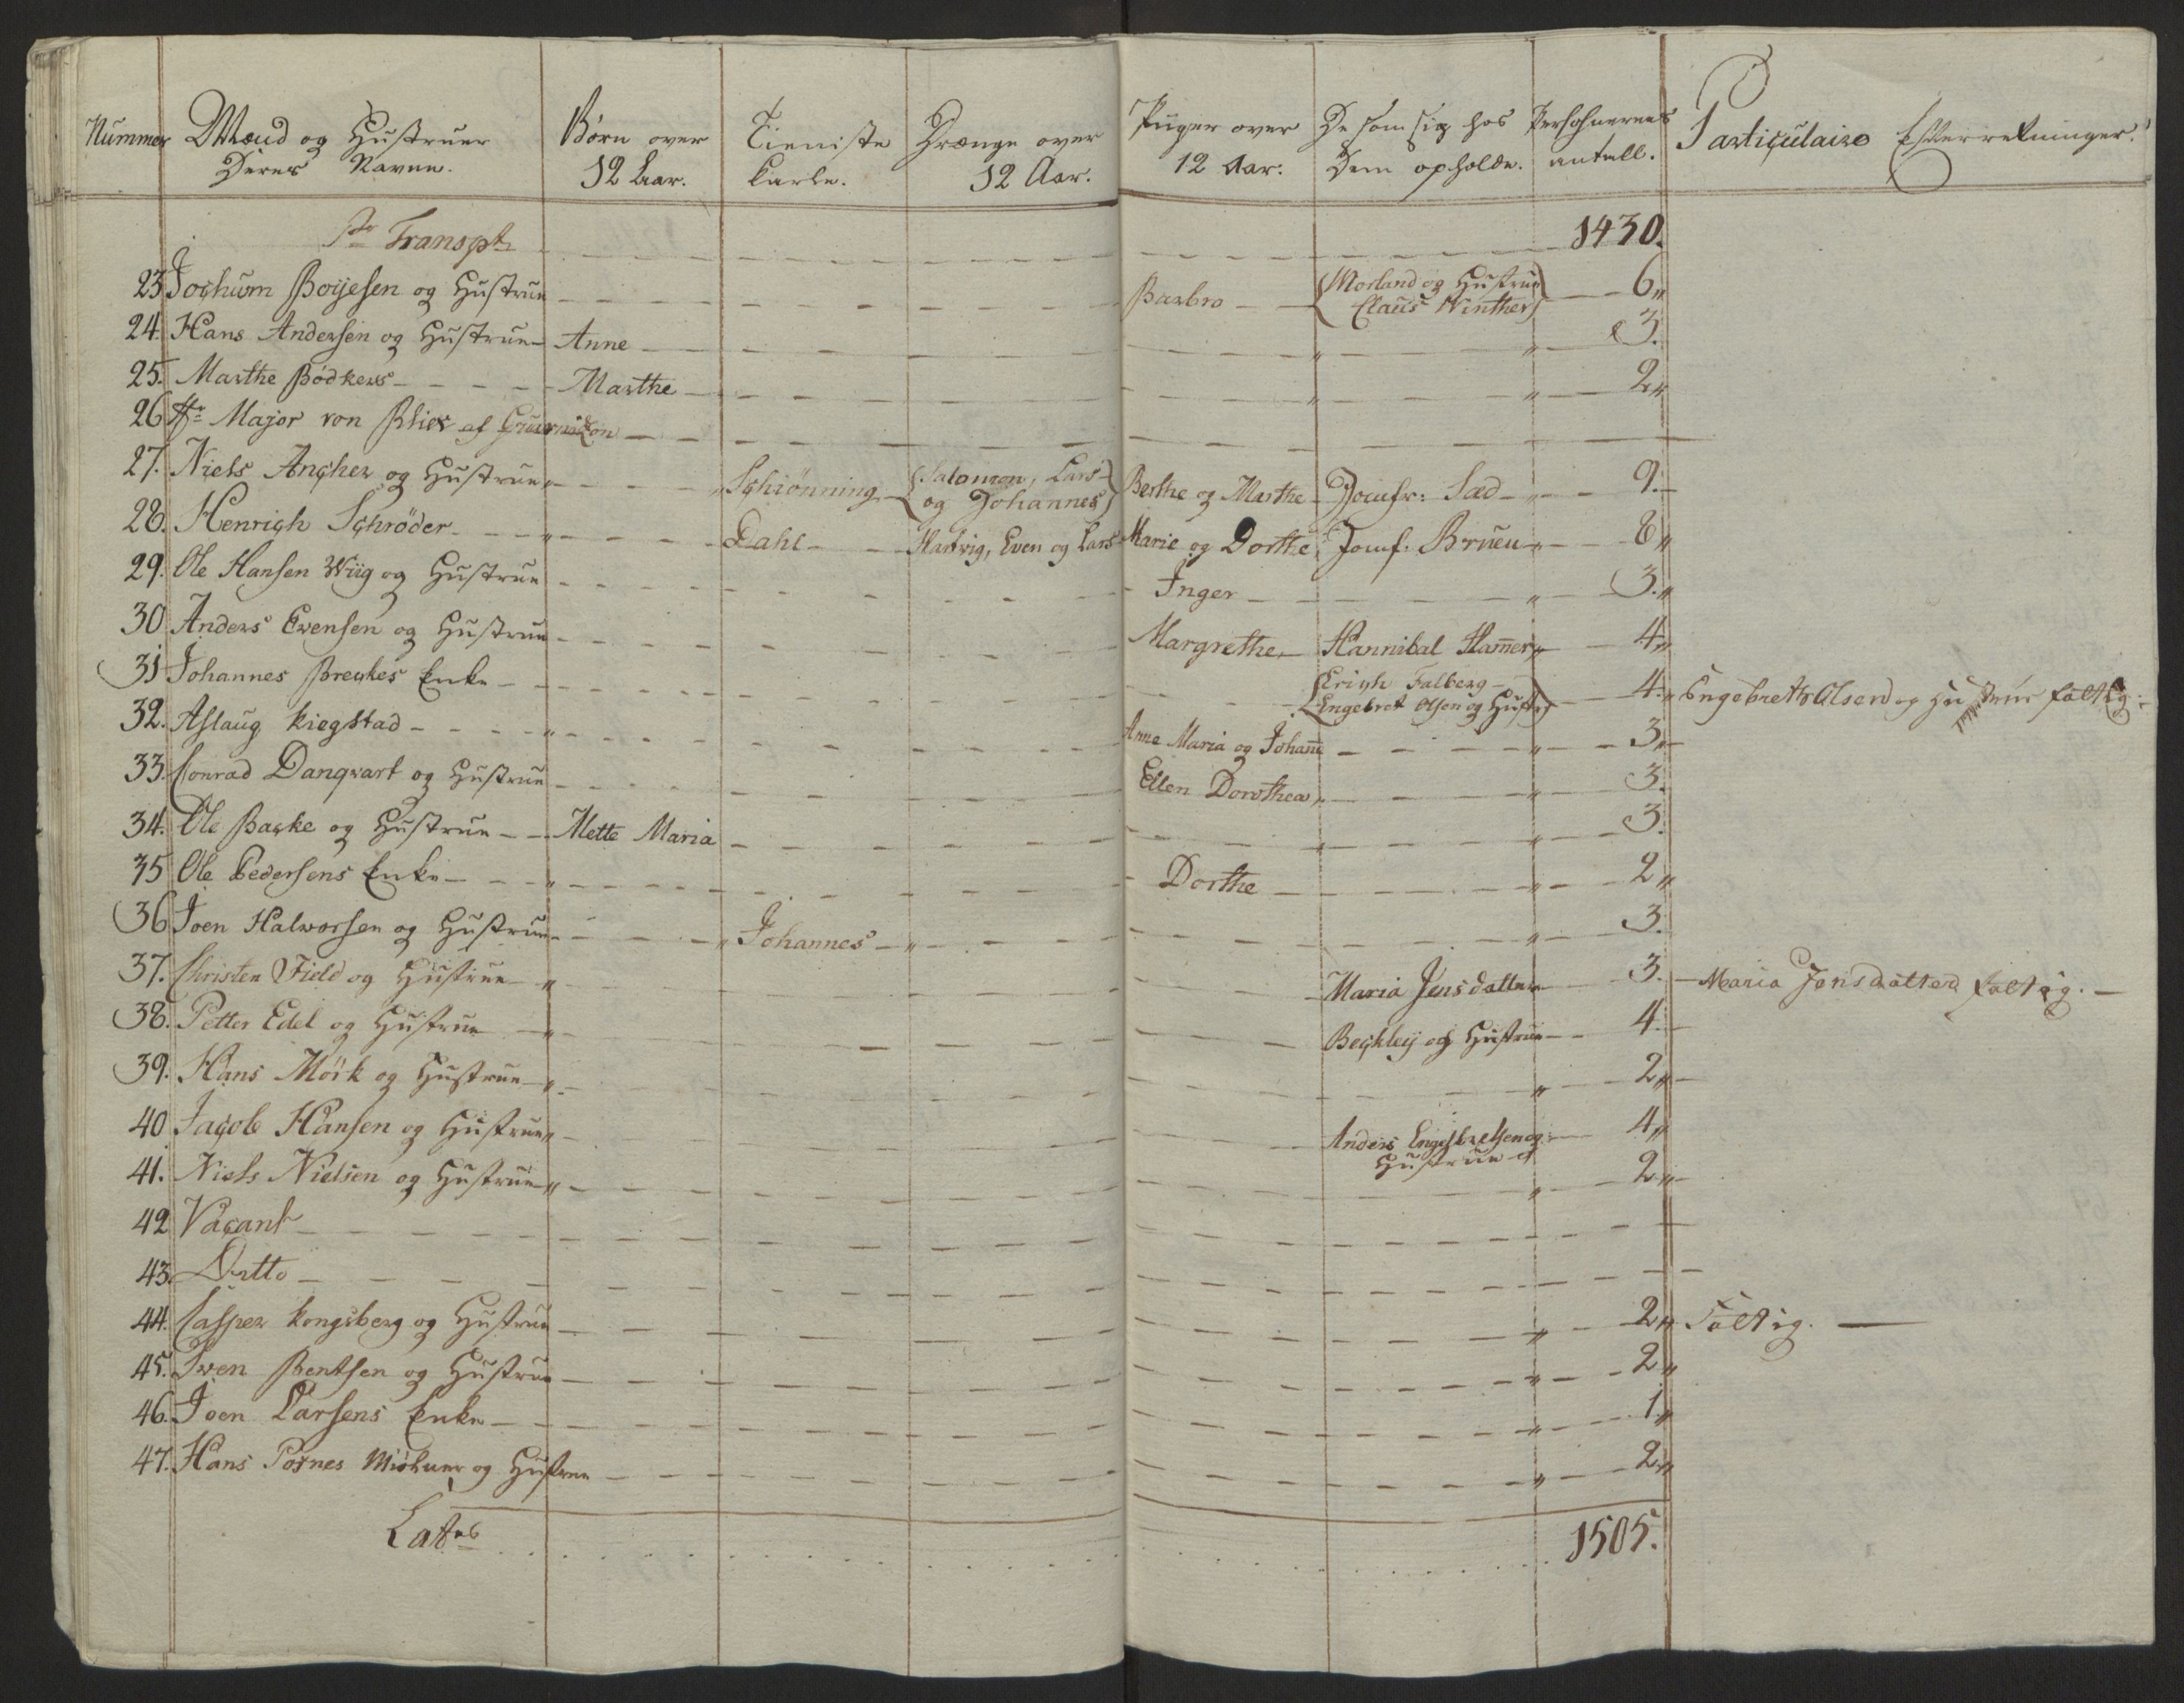 Nummer | Mænd og Hustruer Deres Navne. | Børn over 12 Aar. | Tieniste karle. | Drænge over 12 Aar. | Piiger over 12 Aar: | De som sig hos Dem opholde. | Persohnernes antall. | Particulaire Efterretninger.
Pr Transpt | 1430.
23 Jochum Boyesen og Hustrue | Barbro | (Morland og Hustrue Claus Winther) | 6
24. Hans Andersen og Hustrue | Anne | 3.
25. Marthe Bødkers | Marthe | 2
26 Hr Major von
27. Niels Ancher og Hustrue | Schiønning | (Salomon, Lars og Johannes) | Berthe og Marthe | Jomfr: Sæd | 9.
28. Henrich Schrøder | Dahl | Hartvig, Even og Lars | Marie og Dorthe | Jomf. Bruen | 8
29. Ole Hansen Wiig og Hustrue | Inger | 3.
30 Anders Evensen og Hustrue | Margrethe | Hannibal Ham̄er | 4
31 Johannes Breckes Enke | (Erich Falberg Engebret Olsen og Hustr) | 4. | Engebreth Olsen og Hustrue fattig
32. Aslaug Kiegstad | Anne Maria og Johan̄e | 3
33. Conrad Danqvart og Hustrue | Ellen Dorothea | 3.
34. Ole Backe og Hustrue | Mette Maria | 3.
35 Ole Pedersens Enke | Dorthe | 2
36 Joen Halvorsen og Hustrue | Johannes | 3.
37. Christen Field og Hustrue | Maria Jensdatter | 3. | Maria Jensdatter fattig.
38. Petter Edel og Hustrue | Beckley og Hustrue | 4.
39. Hans Mørk og Hustrue | 2
40 Jacob Hansen og Hustrue | Anders Engebretsen og Hustrue | 4
41. Niels Nielsen og Hustrue | 2
42 Vacant
43. Ditto
44. Casper Kongsberg og Hustrue | 2 | Fattig.
45. Iven Bentsen og Hustrue | 2
46. Joen Larsens Enke | 1
47. Hans Posnes og Hustrue | 2
Lates | 1505.